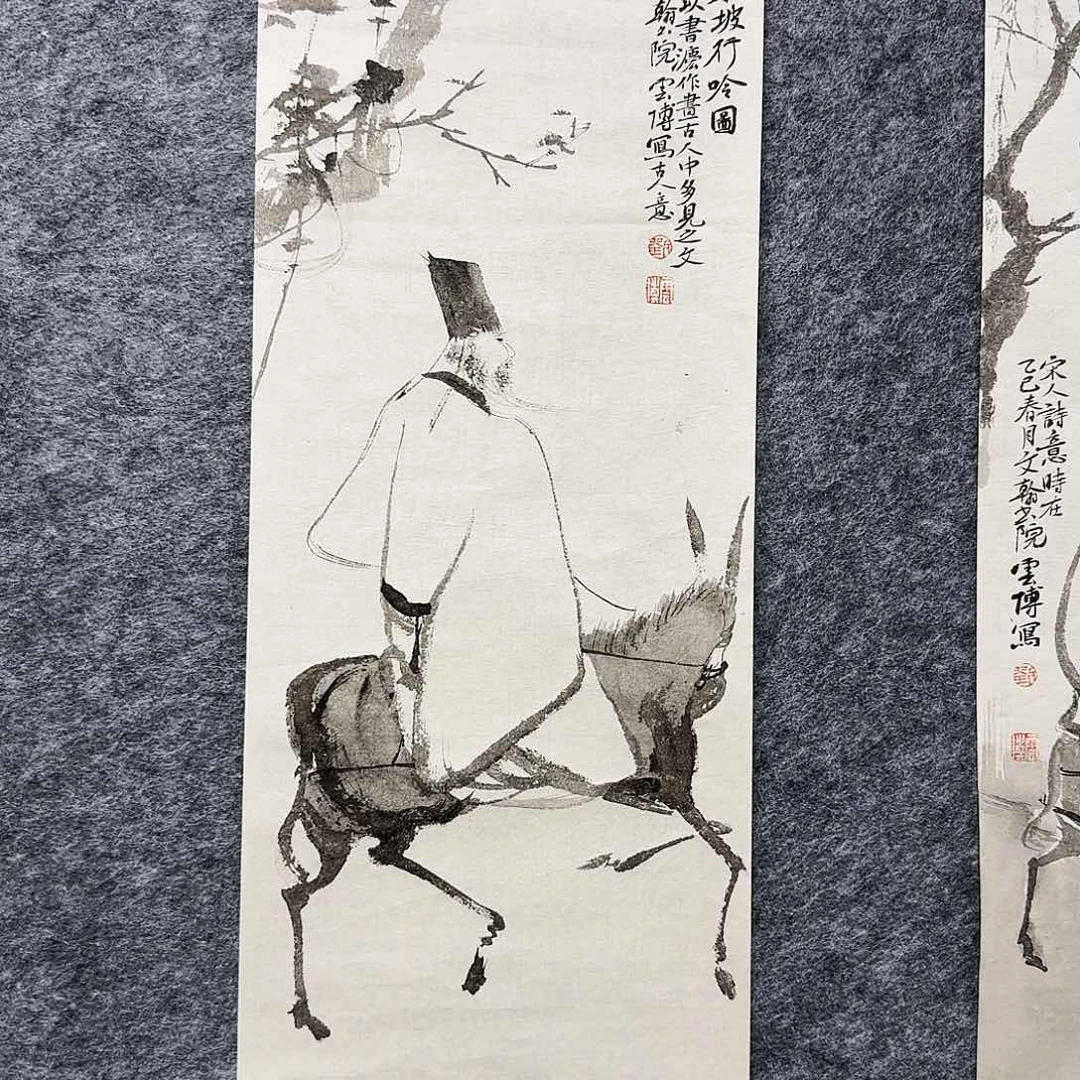 坡行吟圖
以書法作畫古人中多見之文
翰書院雲博寫古人意
宋人詩意時在
乙巳春月文翰書院雲博寫